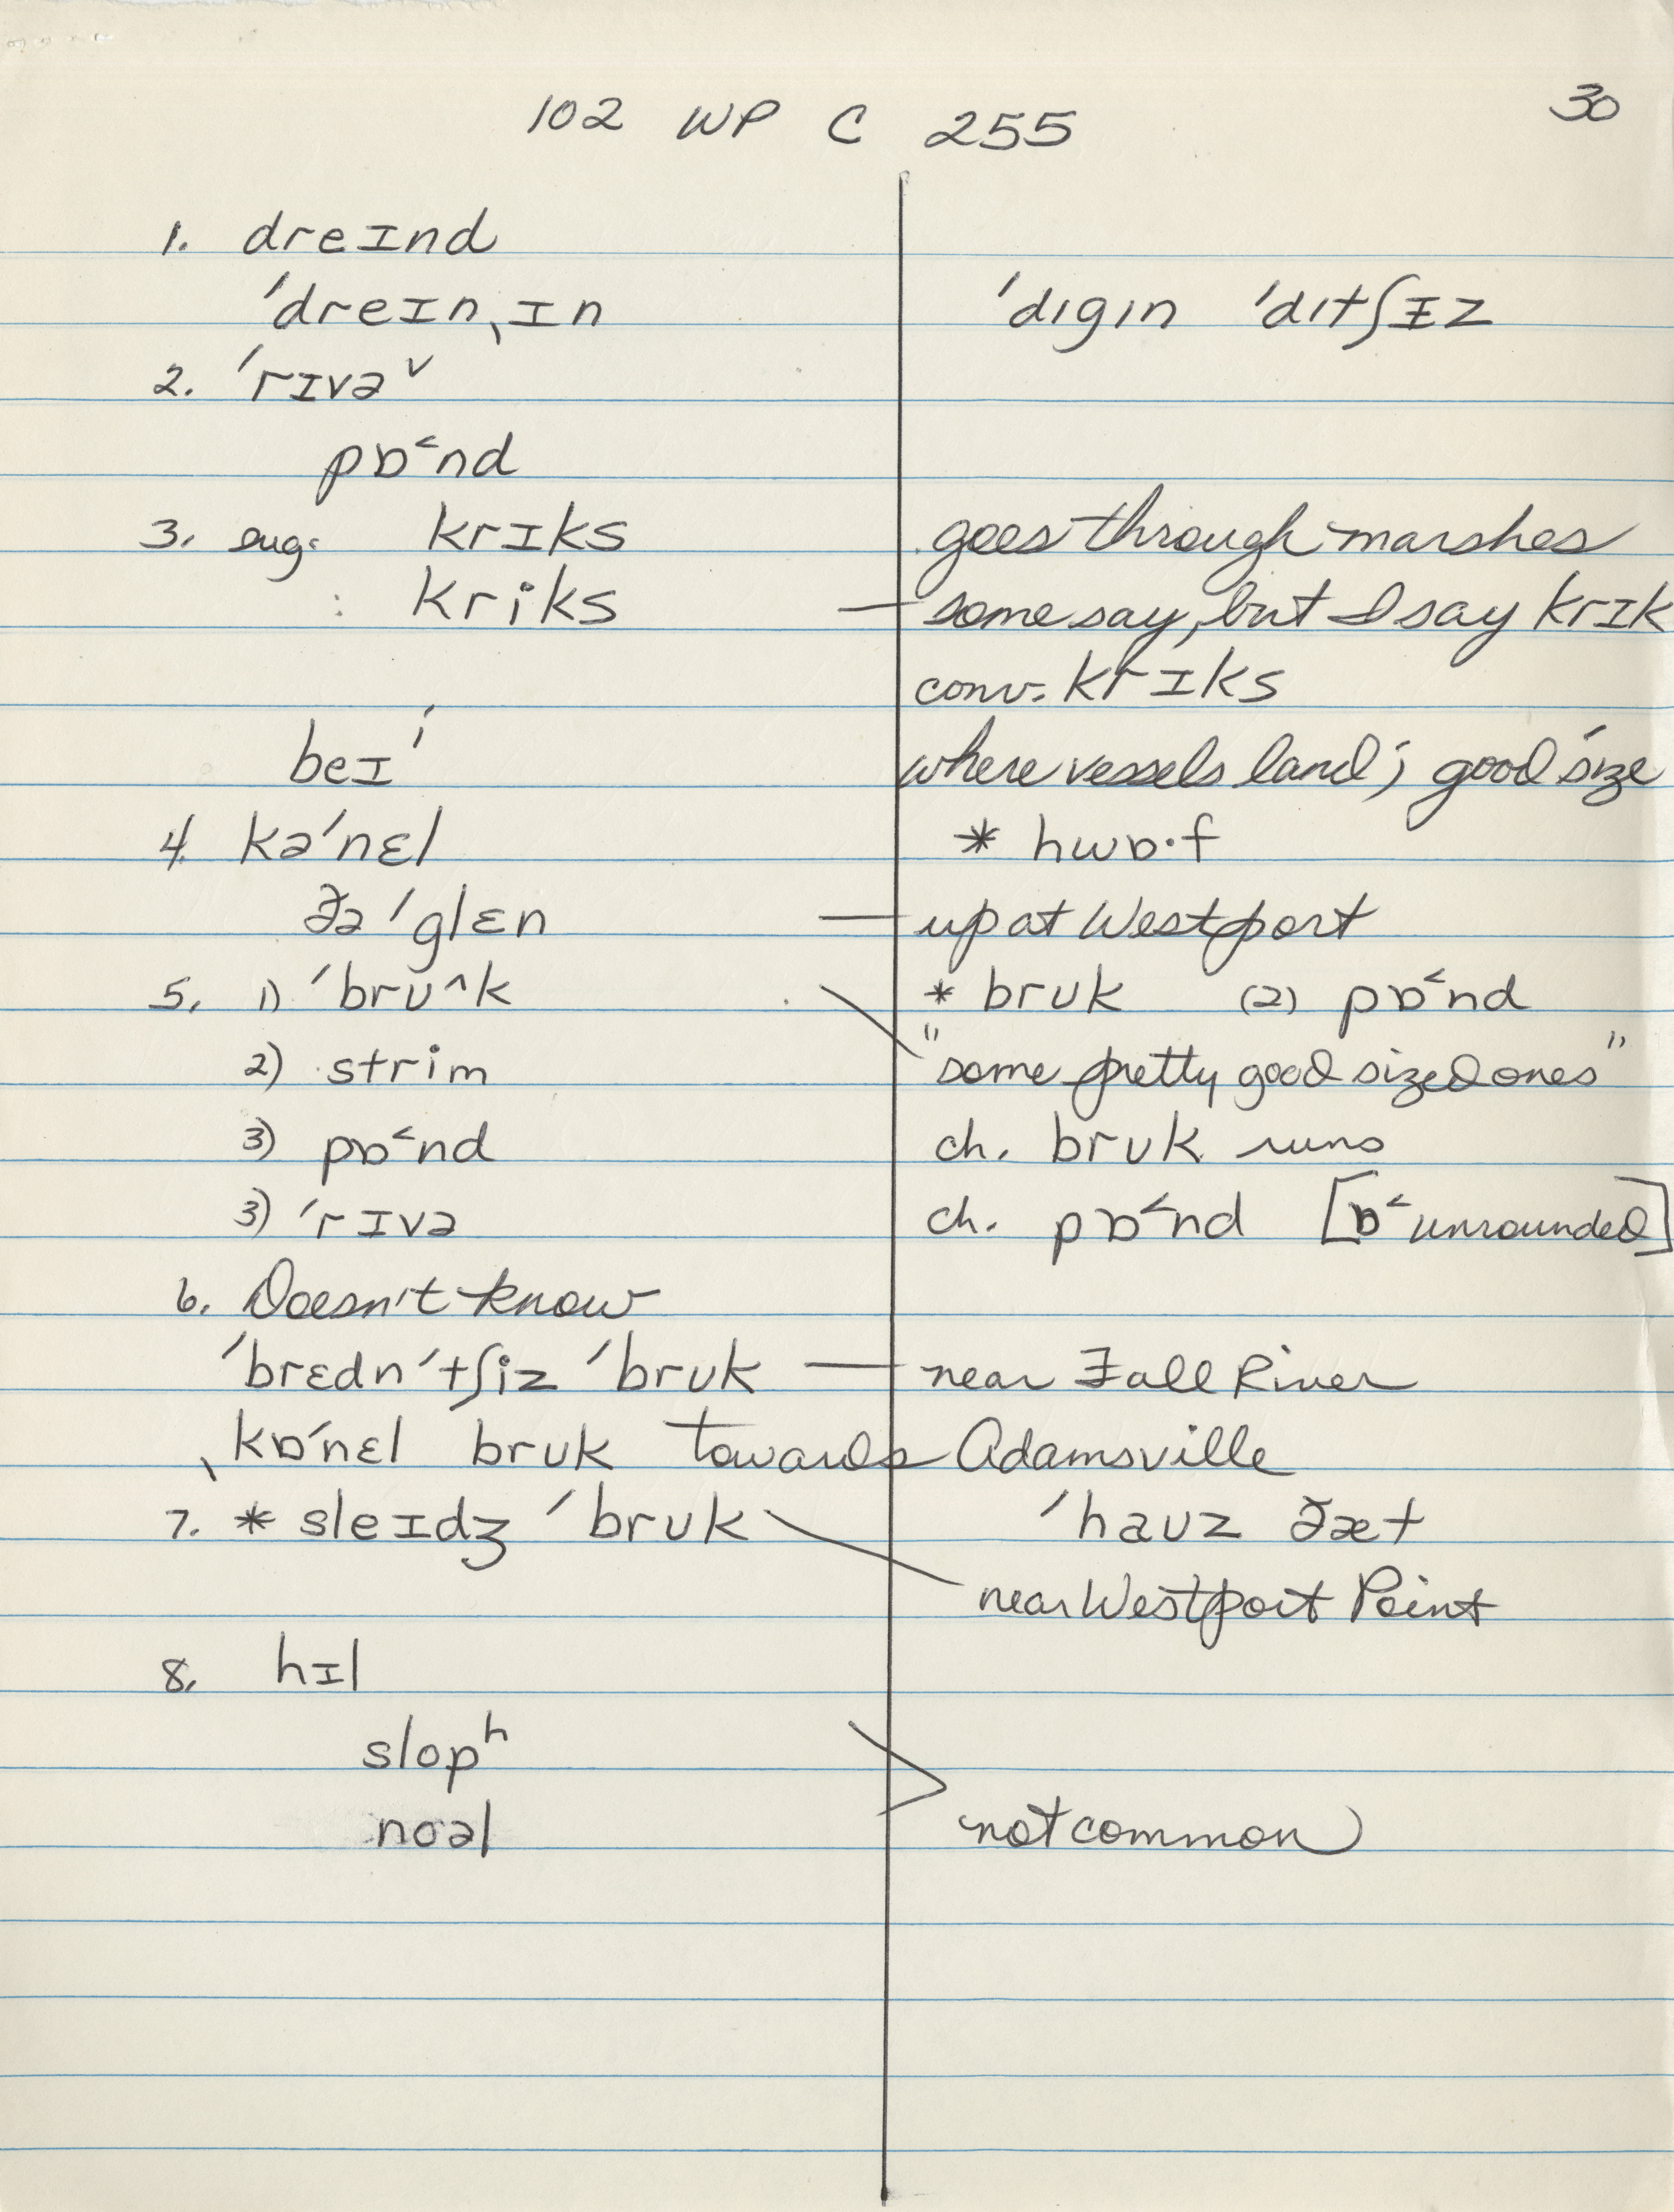 102 WP C 255 30
1. dreɪnd
ˈdreɪnˌɪn ˈdɪgɪn ˈdɪtʃɪ̵z
2. ˈrɪvə˅
pɒ˂nd
3. sug: krɪks goes through marshes
: kriks — some say, but I say krɪk
conv. krɪks
beɪ' where vessels land; good size
4. kəˈnɛl * hwɒ·f
ðə ˈglɛn — up at Westport
5. 1) ˈbrʊ^k * brʊk (2) pɒ˂nd
2) strim "some pretty good sized ones"
3) pɒ˂nd ch. brʊk runs
3) ˈrɪvə ch. pɒ˂nd [ɒ˂ unrounded]
6. Doesn't know
ˈbrɛdnˈtʃiz ˈbrʊk — near Fall River
ˌkɒˈnɛl brʊk towards Adamsville
7. * sleɪdʒ ˈbrʊk ˈhaʊz ðæt
near Westport Point
8. hɪl
slopʰ
noəl not common